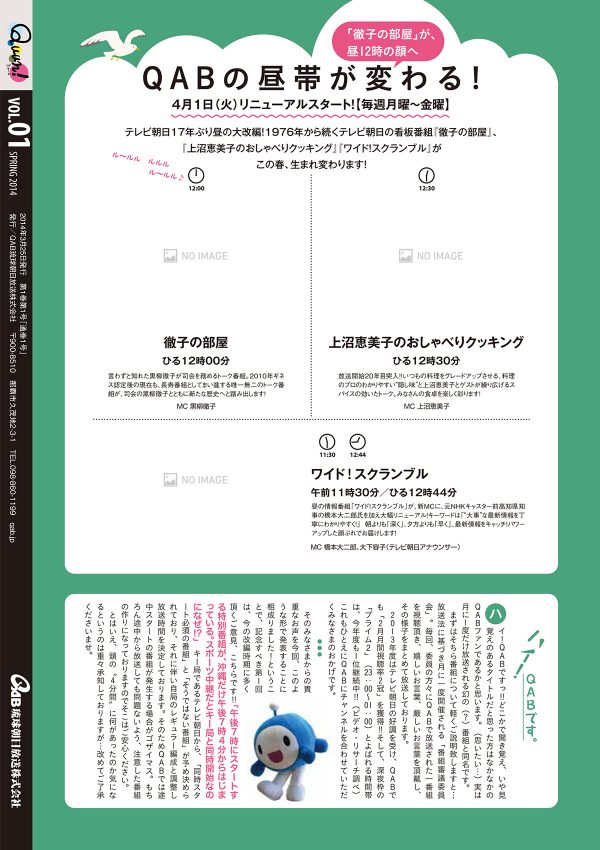 「徹子の部屋」が、
昼12時の顔へ
QABの昼帯が変わる!
4月1日(火)リニューアルスタート!【毎週月曜〜金曜】
テレビ朝日17年ぶり昼の大改編!1976年から続くテレビ朝日の看板番組『徹子の部屋』、
『上沼恵美子のおしゃべりクッキング』『ワイド!スクランブル』が
この春、生まれ変わります!
ル〜ルル ルルル
ル〜ルル♪
12:00
NO IMAGE
徹子の部屋
ひる12時00分
言わずと知れた黒柳徹子が司会を務めるトーク番組。2010年ギネ
ス認定後の現在も、長寿番組としてまい進する唯一無二のトーク番
組が、司会の黒柳徹子とともに新たな歴史へと踏み出します!
MC 黒柳徹子
12:30
NO IMAGE
上沼恵美子のおしゃべりクッキング
ひる12時30分
放送開始20年目突入!!いつもの料理をグレードアップさせる、料理
のプロのわかりやすい“隠し味”と上沼恵美子とゲストが繰り広げるス
パイスの効いたトーク。みなさんの食卓を楽しく彩ります!
MC 上沼恵美子
NO IMAGE
11:30 12:44
ワイド!スクランブル
午前11時30分/ひる12時44分
昼の情報番組「ワイド!スクランブル」が、新MCに、元NHKキャスター前高知県知
事の橋本大二郎氏を加え大幅リニューアル!キーワードは「“大事”な最新情報を丁
寧にわかりやすく!」 朝よりも「深く」、夕方よりも「早く」。最新情報をキャッチ!パワー
アップした顔ぶれでお届けします!
MC 橋本大二郎、大下容子(テレビ朝日アナウンサー)
ハイ!QABです。
ハイ!QABです!!どこかで聞き覚え、いや見
覚えのあるタイトルだと思った方はなかなかの
QABファンであるかと思います。(思いたい…)実は
月に一度だけ放送される幻の(?)番組と同名です。
まずはそちら番組について軽くご説明致しますと…
放送法に基づき月に一度開催される「番組審議委員
会」。毎回、委員の方々にQABで放送された一番組
を視聴頂き、嬉しいお言葉、厳しいお言葉を頂戴し、
その様子をまとめて放送しております。
2013年度はテレビ朝日の好調を受け、QABで
も「2月月間視聴率2冠」を獲得!そして、深夜枠の
「プライム2」(23:00〜01:00)とよばれる時間帯
は、今年度も1位継続中!!(ビデオ・リサーチ調べ)
これもひとえにQABにチャンネルを合わせていただ
くみなさまのおかげです。
そのみなさまからの貴
重なお声を今回、このよ
うな形で発表することに
相成りました!ということ
とで、記念すべき第一回
は、今の改編時期に多く
頂くご意見、こちらです!!「午後7時にスタートす
る特別番組が、沖縄だけ午後7時4分からはじま
っている。スポーツ中継だとキー局と同時開始なの
になぜ!?」…キー局であるテレビ朝日から、「同時スタ
ート必須の番組」と「そうではない番組」が予め決めら
れており、それに伴い自局のレギュラー編成と調整し
放送時間を決定しております。そのためQABでは途
中スタートの番組が発生する場合がゴザイマス。もち
ろん途中から放送しても問題ないよう、注意した番組
の作りになっておりますのでそこはご安心ください。
とはいえ、頭の「4分間」に何があったのか気にな
るというのは重々承知しておりますが…改めてご了承
くださいませ。
Q+uon!
VOL.01 SPRING 2014
2014年3月25日発行 第1巻第1号「通巻1号」
発行/QAB琉球朝日放送株式会社 〒900-8510 那覇市久茂地2-3-1 TEL.098-860-1199 qab.jp
QAB 琉球朝日放送株式会社